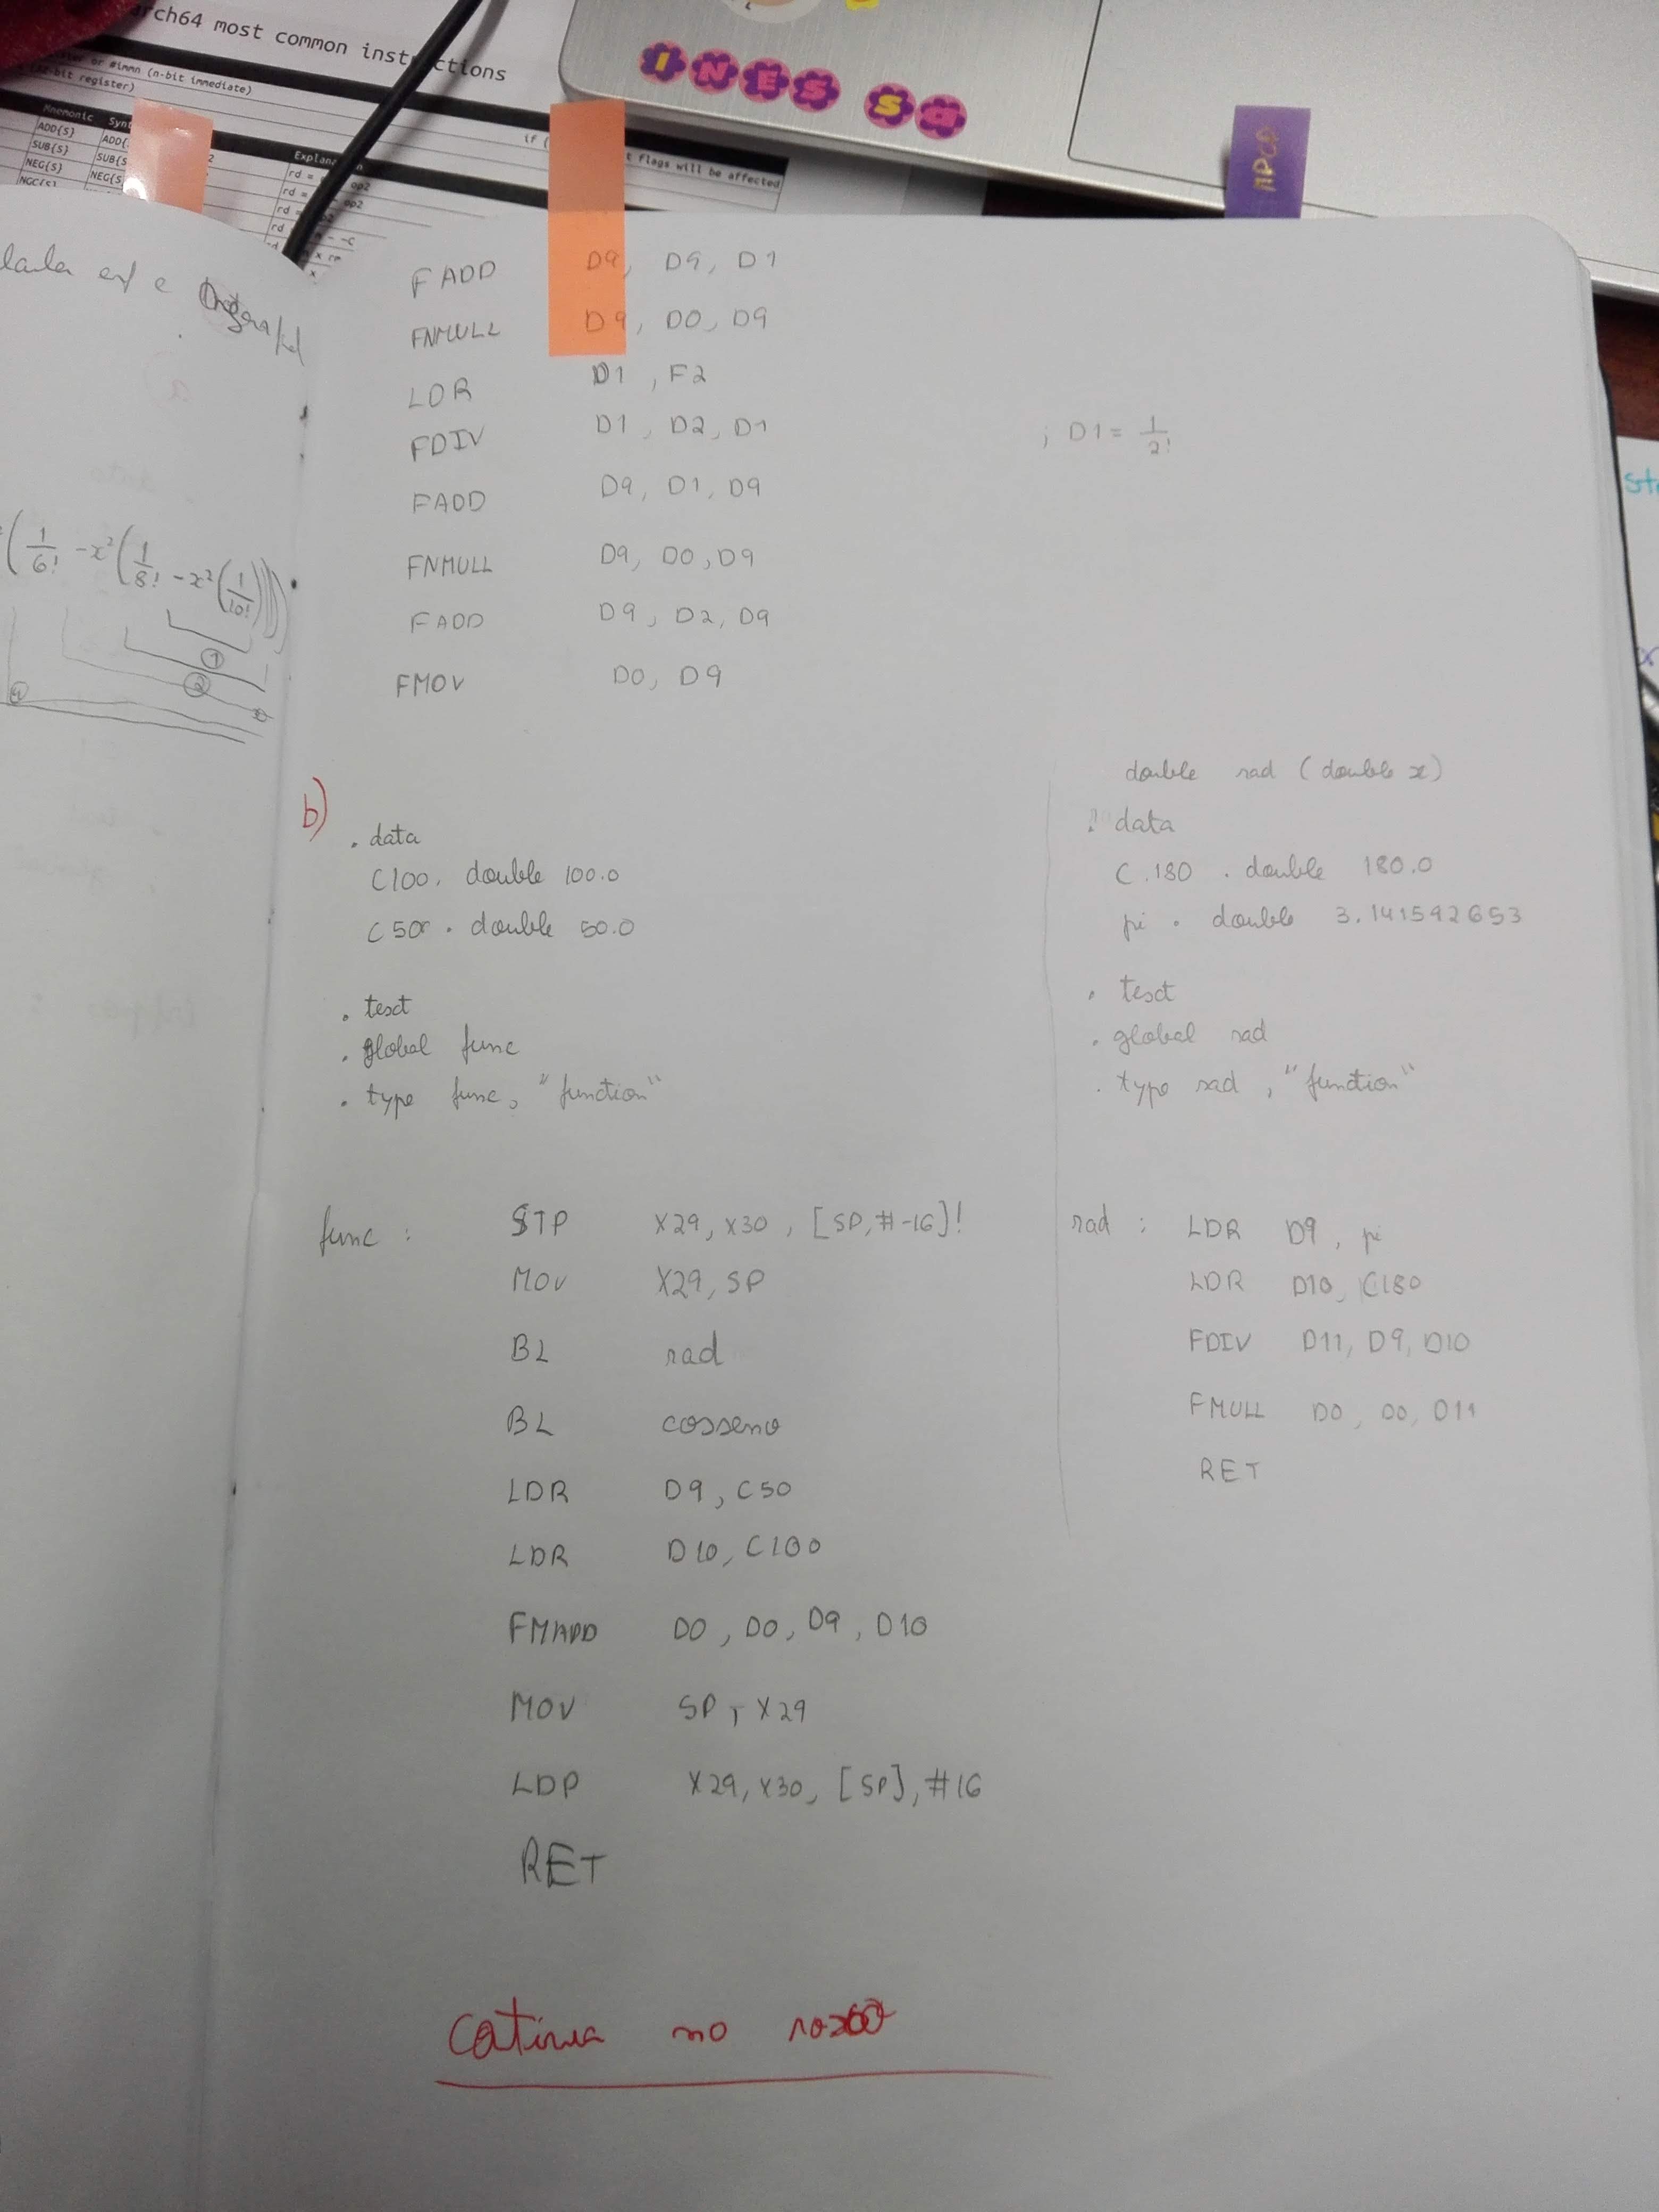 rch64 most common instructions
or #immn (n-bit immediate)
-bit register)
Mnemonic
ADD{S}
SUB{S}
NEG{S}
NGC{S}
ADD{
SUB{S
NEG{S
if (
t flags will be affected
op2
op2
INES Sa
MPCP
FADD D9, D9, D1
FNMULL D9, D0, D9
LDR D1, F2
FDIV D1, D2, D1 ; D1 = 1/2!
FADD D9, D1, D9
FNMULL D9, D0, D9
FADD D9, D2, D9
FMOV D0, D9
(1/6! -x²(1/8! -x²(1/10!)))
①
②
④
b)
.data
C100. double 100.0
C50. double 50.0
.text
.global func
.type func, "function"
func: STP X29, X30, [SP, #-16]!
MOV X29, SP
BL rad
BL cosseno
LDR D9, C50
LDR D10, C100
FMADD D0, D0, D9, D10
MOV SP, X29
LDP X29, X30, [SP], #16
RET
double rad (double x)
. data
C.180 . double 180.0
pi . double 3.141592653
. text
. global rad
. type rad, "function"
rad: LDR D9, pi
LDR D10, C180
FDIV D11, D9, D10
FMULL D0, D0, D11
RET
no